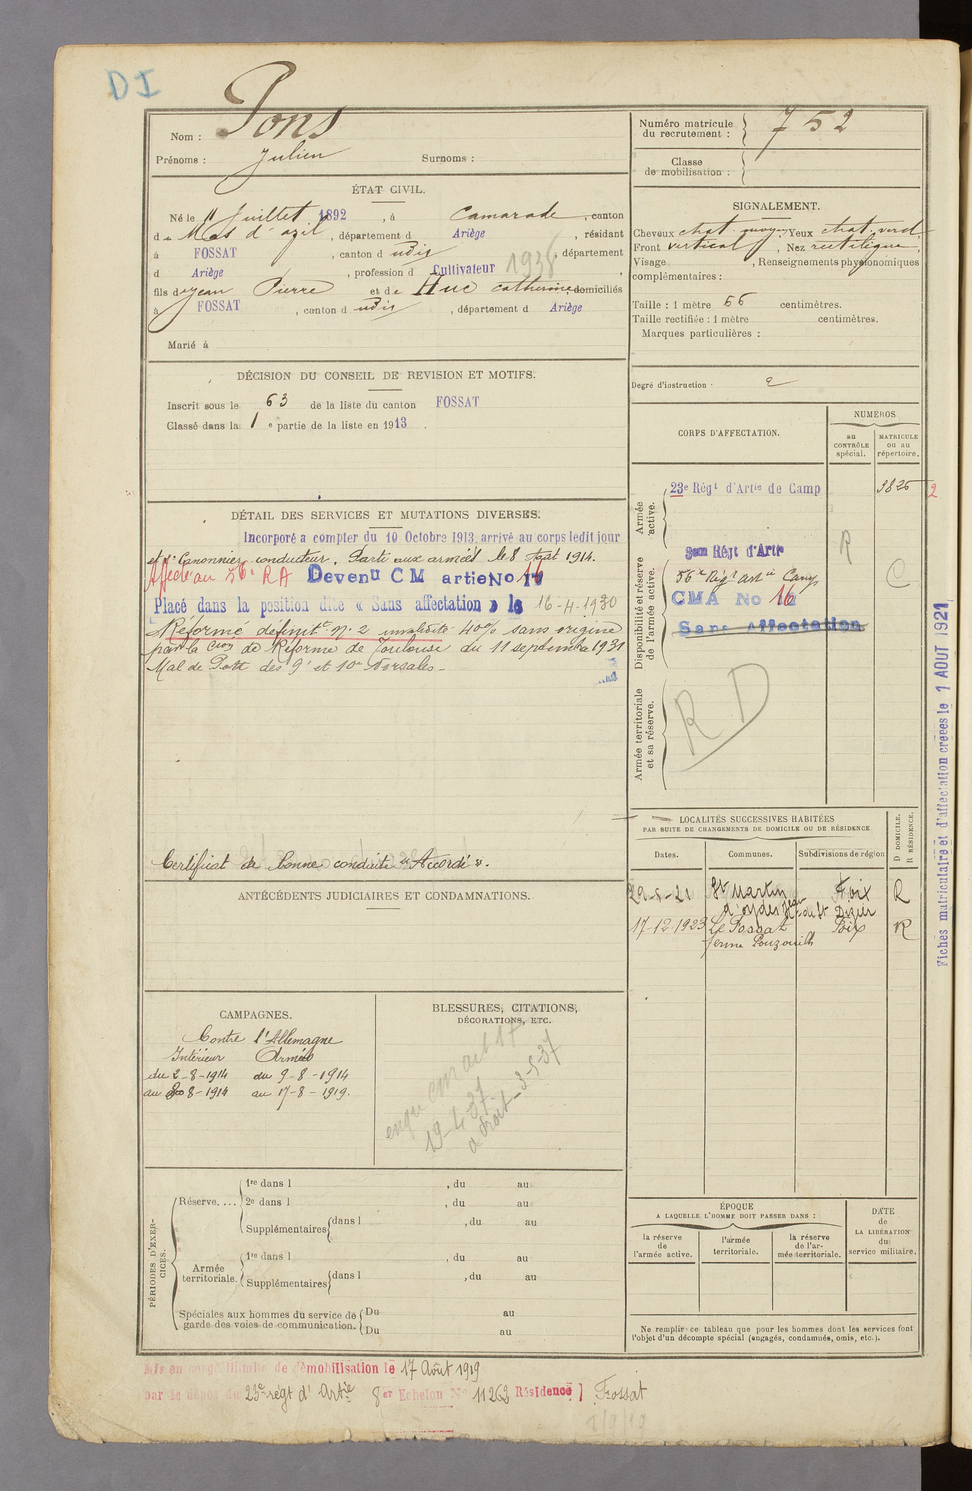 DI
Nom : Pons
Prénoms : Julien Surnoms :
Numéro matricule du recrutement : 752
Classe de mobilisation :
ÉTAT CIVIL.
Né le 11 Juillet 1892, à Camarade, canton
du Mas d'azil, département d Ariège, résidant
à FOSSAT, canton d udis, département
d Ariège, profession d Cultivateur 1938,
fils de Jean Pierre et de Huc Catherine domiciliés
à FOSSAT, canton d udis, département d Ariège
Marié à
SIGNALEMENT.
Cheveux chat. moyen Yeux chat. verd
Front vertical, Nez rectiligne
Visage , Renseignements physionomiques
complémentaires :
Taille : 1 mètre 66 centimètres.
Taille rectifiée : 1 mètre centimètres.
Marques particulières :
DÉCISION DU CONSEIL DE REVISION ET MOTIFS.
Inscrit sous le 63 de la liste du canton FOSSAT
Classé dans la 1e partie de la liste en 1913.
Degré d'instruction · 2
CORPS D'AFFECTATION.
NUMÉROS
au CONTRÔLE spécial.
MATRICULE ou au répertoire.
Armée active.
23e Régt d'Artie de Camp 3825 2
Disponibilité et réserve de l'armée active.
56e Régt artie Camp
CMA No 16
Sans Affectation
R
C
Armée territoriale et sa réserve.
R D
DÉTAIL DES SERVICES ET MUTATIONS DIVERSES.
Incorporé a compter du 10 Octobre 1913, arrivé au corps ledit jour
et 2e Canonnier conducteur. Parti aux armées le 8 Août 1914.
Affecté au 56e RA Devenu CM artie No 16
Placé dans la position dite « Sans affectation » le 16-4-1930
Réformé définitt n° 2 invalidité 40% sans origine
par la Cion de Réforme de Toulouse du 11 septembre 1931
Mal de Pott des 9e et 10e Dorsales-
Certificat de bonne conduite « Accordé ».
Fiches matriculaire et d'affectation créées le 1 AOUT 1921
LOCALITÉS SUCCESSIVES HABITÉES
PAR SUITE DE CHANGEMENTS DE DOMICILE OU DE RÉSIDENCE
Dates. Communes. Subdivisions de région
D DOMICILE. R RÉSIDENCE.
St Martin Foix R
17-12-1923 Le Fossat Foix R
ferme
ANTÉCÉDENTS JUDICIAIRES ET CONDAMNATIONS.
CAMPAGNES.
Contre l'Allemagne
Intérieur Armées
du 2-8-1914 du 9-8-1914
au 8-8-1914 au 17-8-1919.
BLESSURES, CITATIONS,
DÉCORATIONS, ETC.
19-4-37
3-5-37
PÉRIODES D'EXERCICES.
Réserve....
1re dans l , du au
2e dans l , du au
Supplémentaires dans l , du au
Armée territoriale.
1re dans l , du au
Supplémentaires dans l , du au
Spéciales aux hommes du service de garde des voies de communication.
Du au
Du au
ÉPOQUE
A LAQUELLE L'HOMME DOIT PASSER DANS :
la réserve de l'armée active.
l'armée territoriale.
la réserve de l'armée territoriale.
DATE de LA LIBÉRATION du service militaire.
Ne remplir ce tableau que pour les hommes dont les services font
l'objet d'un décompte spécial (engagés, condamnés, omis, etc.).
Mis en congé illimité de démobilisation le 17 Août 1919
par le dépôt du 23e régt d'Artie 8er Echelon No 11263 Résidence Fossat